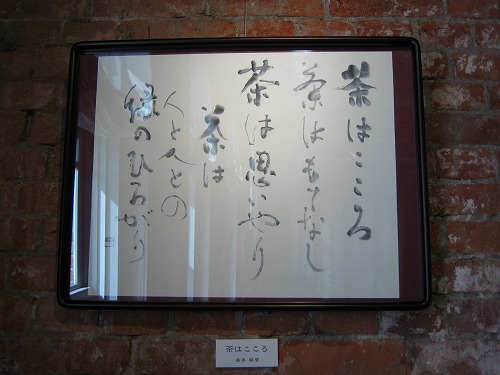 茶はこころ
茶はもてなし
茶は思いやり
茶は
人と人との
縁のひろがり
茶はこころ